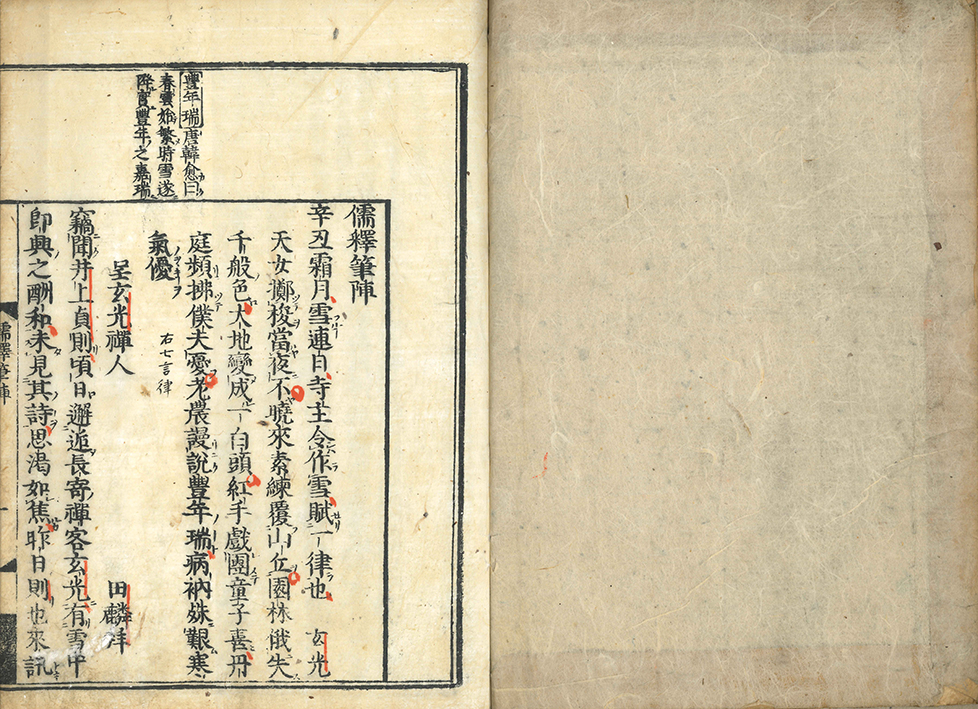 豐年瑞唐韓愈曰
春雲始繁時雪遂
降實豐年之嘉瑞
儒釋筆陣
辛丑霜月雪連日寺主令作雪賦一律也 玄光
天女擲梭當夜不曉來素練覆山丘園林俄失
千般色大地變成一白頭紅手戲團童子喜丹
庭頻拂僕夫憂老農謾說豐年瑞病衲殊艱寒
氣優
右七言律
呈玄光禪人 田麟洋
竊聞井上貞則頃日邂逅長寄禪客玄光有雪中
即興之酬和未見其詩思渴如焦昨日則也來訊
儒釋筆陣
一